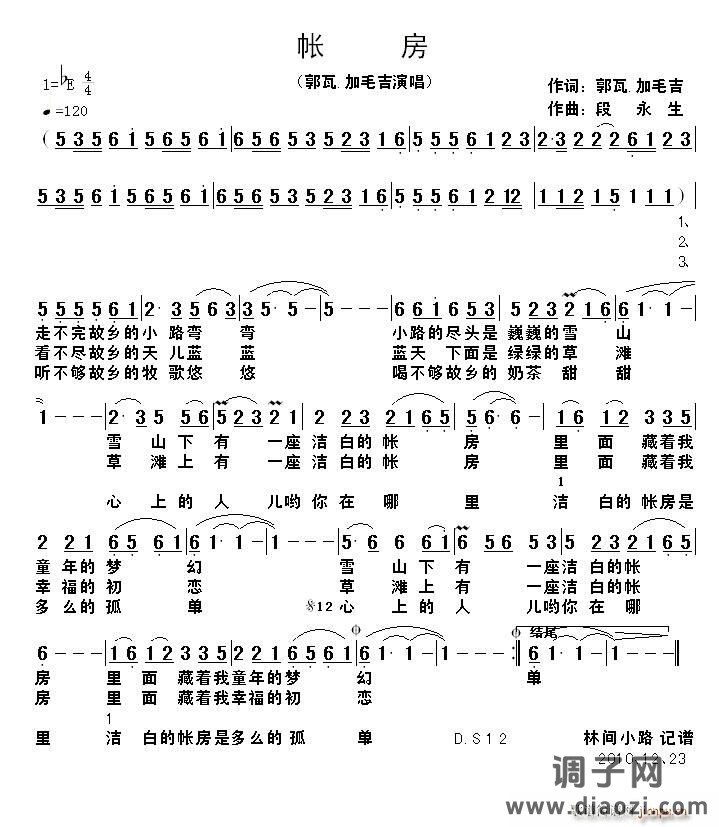 帐 房
1=♭E 4/4
（郭瓦.加毛吉演唱）
作词：郭瓦.加毛吉
♩=120
作曲：段 永 生
( 5 3 5 6 1 5 6 5 6 1 | 6 5 6 5 3 5 3 5 2 3 1 6 | 5 5 5 5 6 1 2 3 | 2·3 2 2 2 6 1 2 3 |
5 3 5 6 1 5 6 5 6 1 | 6 5 6 5 3 5 2 3 1 6 | 5 5 5 5 6 1 2 12 | 1 1 2 1 5 1 1 1 )
1、
2、
3、
5 5 5 5 6 1 | 2· 3 5 6 3 | 3 5· 5 - | 5 - - - | 6 6 1 6 5 3 | 5 2 3 2 1 6 | 6 1 - - |
走不完故乡的小 路弯 弯 小路的尽头是 巍巍的雪 山
看不尽故乡的天 儿蓝 蓝 蓝天 下面是 绿绿的草 滩
听不够故乡的牧 歌悠 悠 喝不够故乡的 奶茶 甜 甜
1 - - - | 2· 3 5 5 6 | 5 5 2 3 2 1 | 2 2 3 2 1 6 5 | 5 6· 6 - | 1 6 1 2 3 3 5 |
雪 山下 有 一座洁 白的 帐 房 里 面 藏着我
草 滩上 有 一座洁 白的 帐 房 里 面 藏着我
1
心 上的 人 儿哟你 在 哪 里 洁 白的帐房是
2 2 1 6 5 6 1 | 6 1· 1 - | 1 - - - | 5· 6 6 5 6 1 | 6 5 6 5 | 3 5 2 3 | 2 1 6 5 |
童年的 梦 幻 雪 山下 有 一座洁 白的 帐
幸福的 初 恋 草 滩上 有 一座洁 白的 帐
多么的 孤 单 12 心 上的 人 儿哟你 在 哪
6 - - - | 1 6 1 2 3 3 5 | 2 2 1 6 5 6 1 | 6 1· 1 - | 1 - - - :‖ 结尾 6 1· 1 - | 1 - - - ‖
房 里 面 藏着我童年的 梦 幻 单
房 里 面 藏着我幸福的 初 恋
1
里 洁 白的帐房是多么的 孤 单 D.S 1 2 林间小路 记谱
2010.12.23
调子网
www.diaozi.com